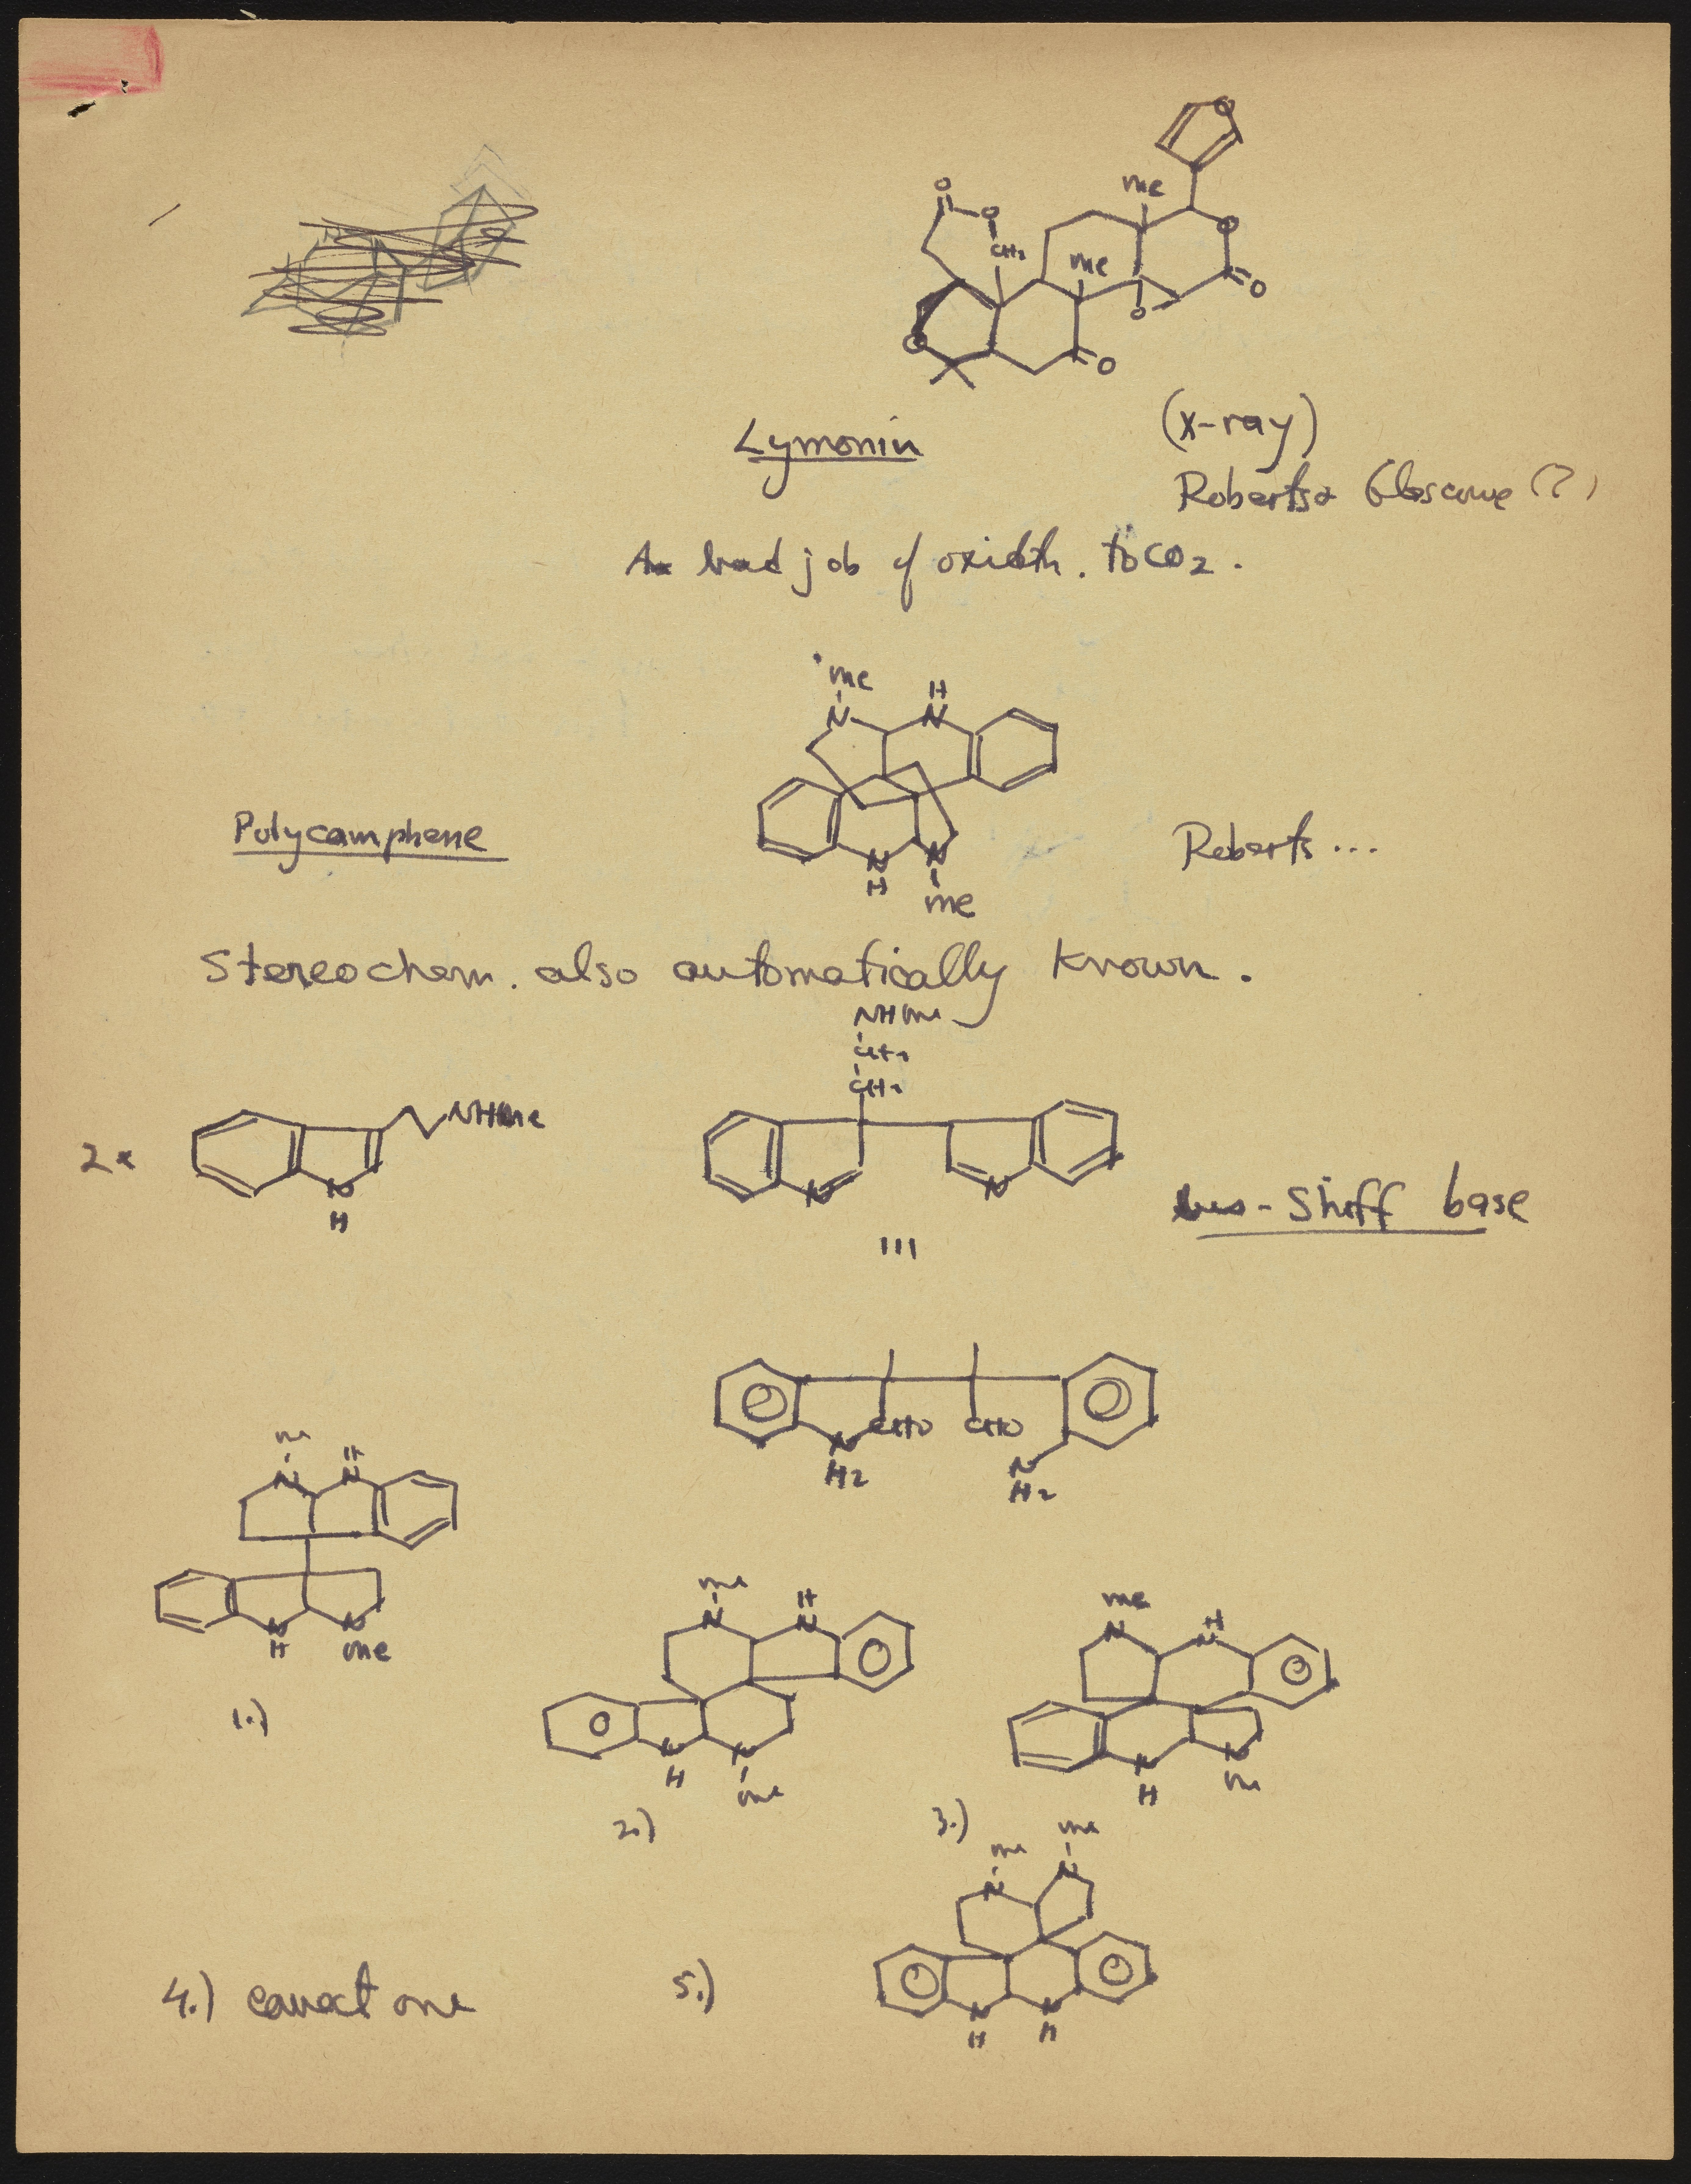 O
me
O
O
O
CH2
me
O
O
O
O
Lymonin
(x-ray)
Roberts &
(?)
bad job of oxidtn. to CO2.
me
H
N
N
Polycamphene
Roberts ...
N
N
H
me
Stereochem. also automatically known.
NHme
CH2
CH2
2x
NHme
N
H
N
N
bis-Shiff base
III
CHO
CHO
N
H2
N
H2
me
H
N
N
N
N
H
me
1.)
me
H
N
N
N
N
H
me
2.)
me
H
N
N
N
N
H
me
3.)
me
me
N
N
4.) correct one
5.)
N
N
H
H